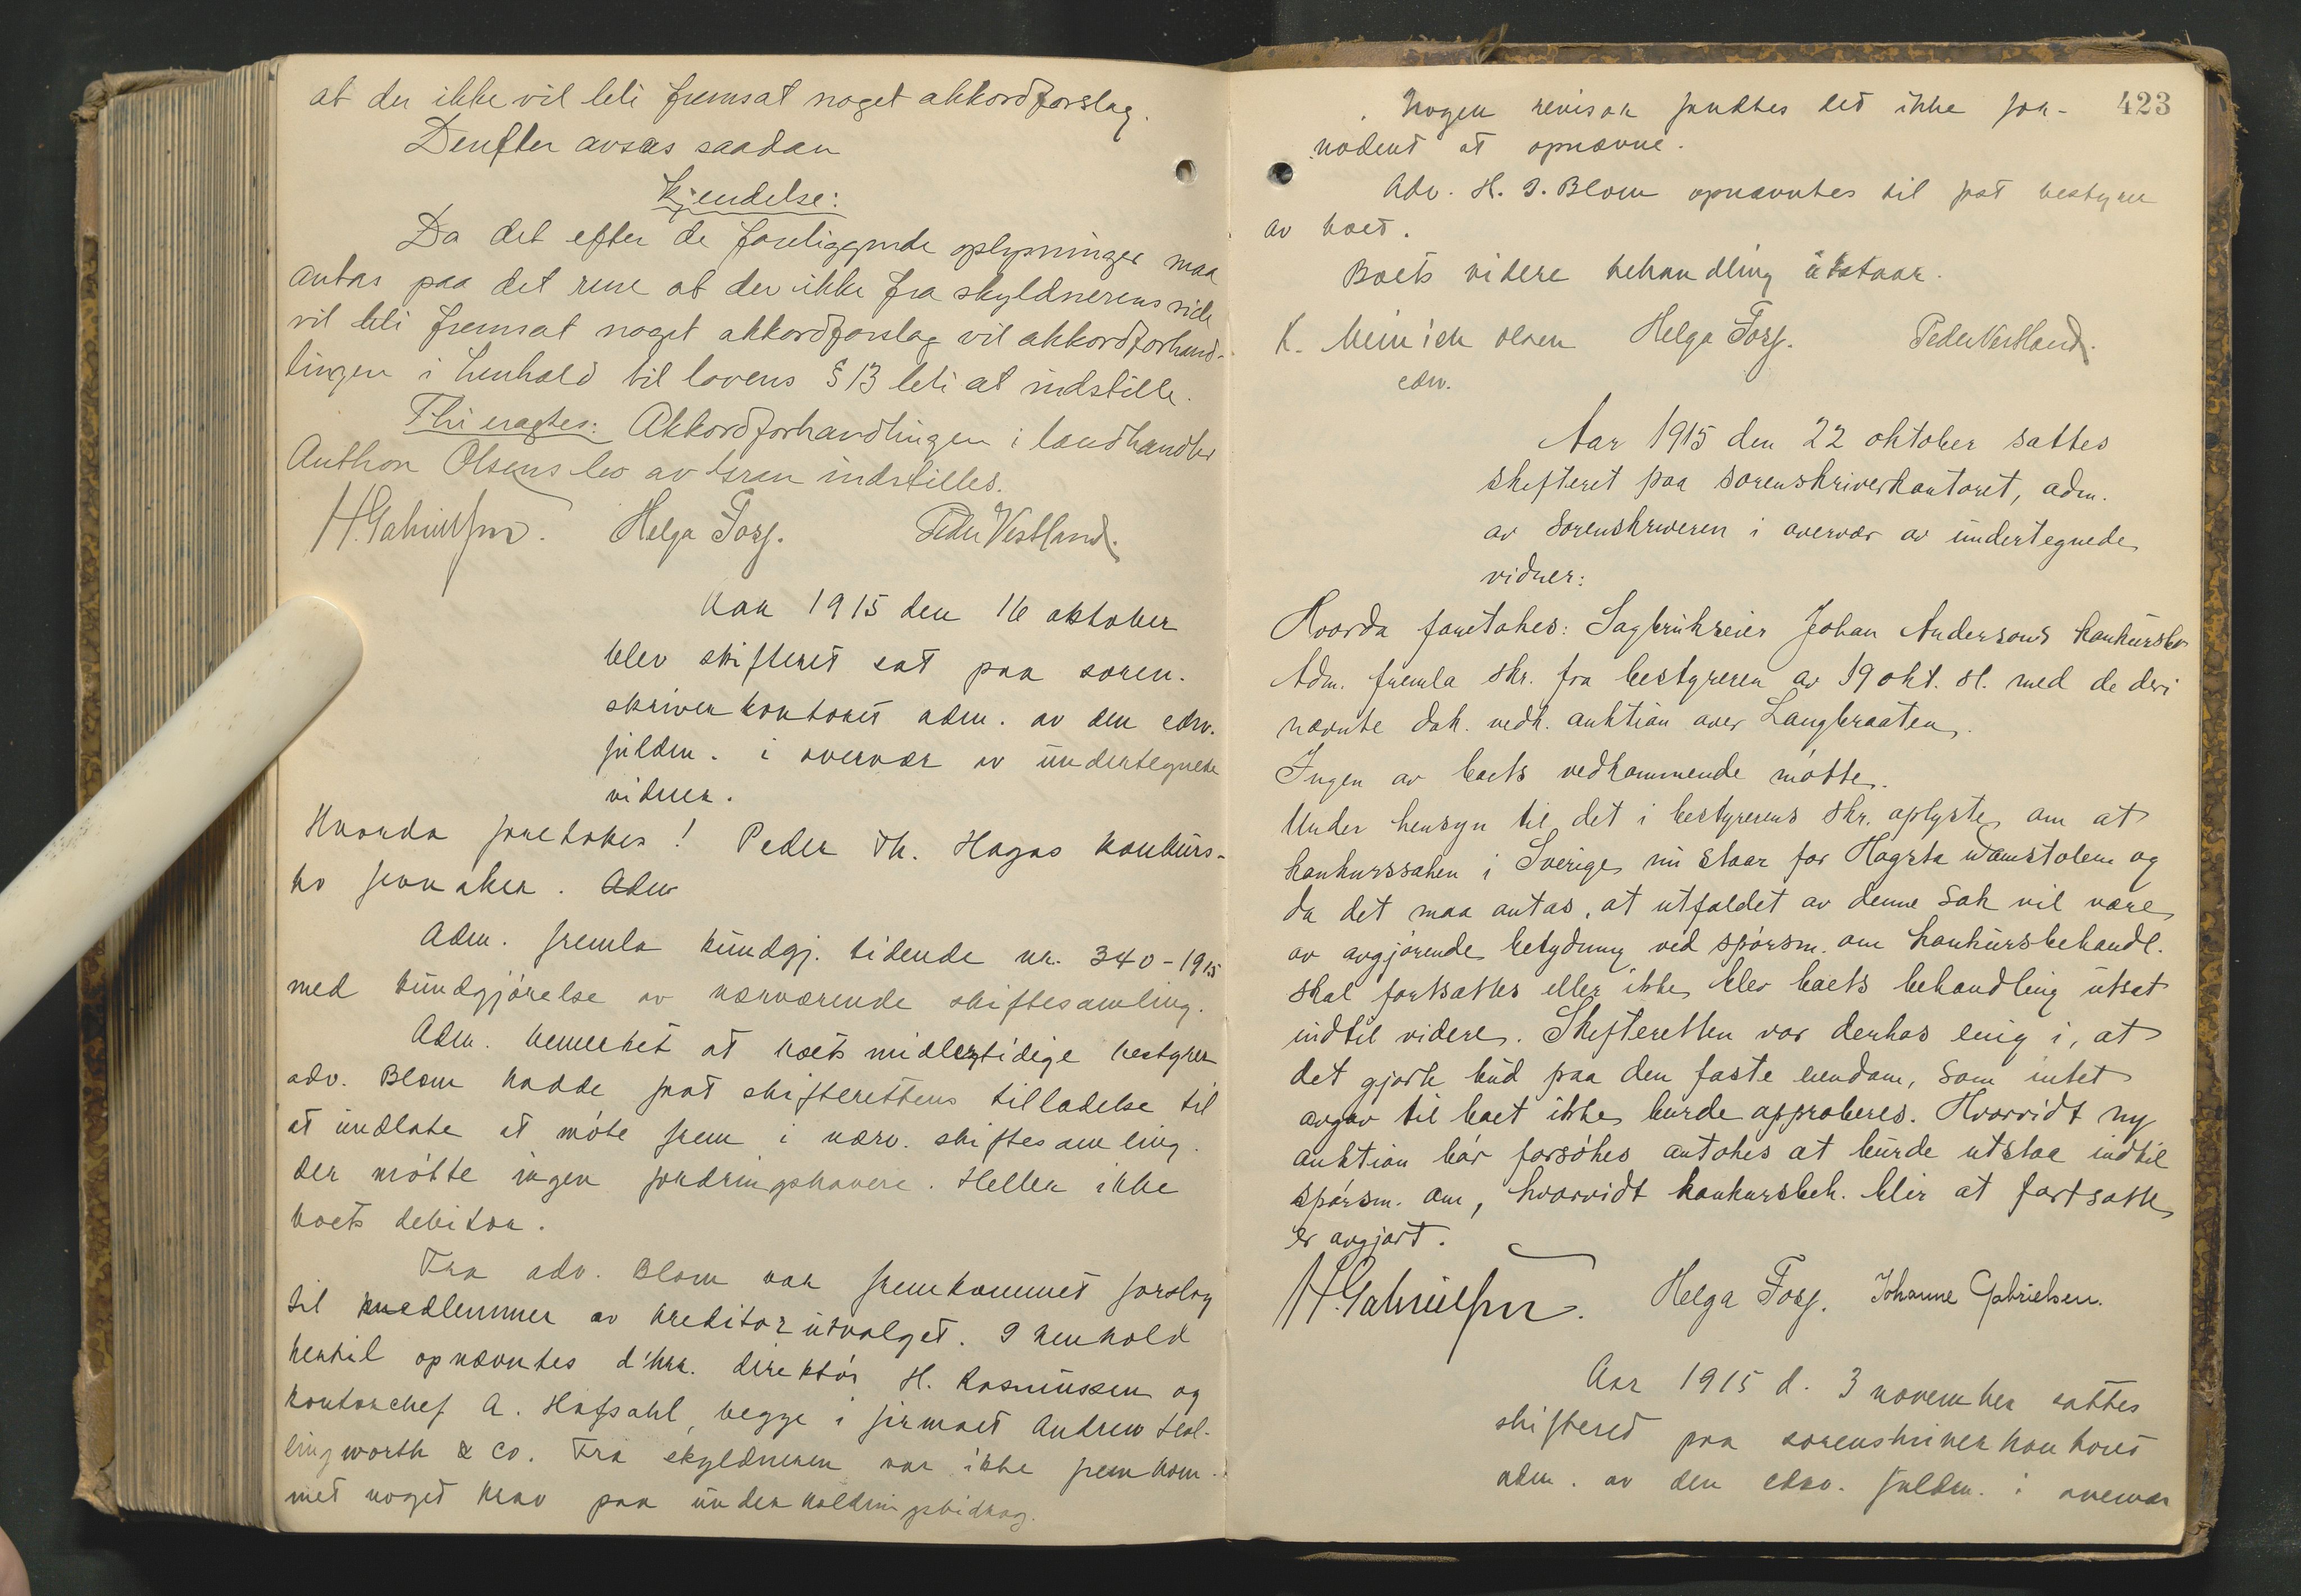 at der ikke vil bli fremsat noget akkordforslag.
Derefter avsaes saadan
Kjendelse:
Da det efter de foreliggende oplysninger maa
antas paa det rene at der ikke fra skyldnerens side
vil bli fremsat noget akkordforslag vil akkordforhand-
lingen i henhold til lovens § 13 bli at indstille.
Thi eragtes: Akkordforhandlingen i landhandler
Anthon Olsens bo av Gran indstilles.
H. Gabrielsen. Helga Fosg. Peder Vestland.
Aar 1915 den 16 oktober
blev skifteret sat paa soren-
skriverkontoret adm. av den edsv.
fuldm. i overvær av undertegnede
vidner.
Hvorda foretokes! Peder Th. Hagas konkurs-
bo Jevnaker. Adm
Adm. fremla kundgj. tidende nr. 340 - 1915
med kundgjørelse av nærværende skiftesamling.
Adm. bemerket at boets midlertidige bestyrer
adv. Blom hadde faat skifterettens tilladelse til
at undlate at møte frem i nærv. skiftesamling.
Der møtte ingen fordringshavere. Heller ikke
boets debitor.
Fra adv. Blom var fremkommet forslag
til medlemmer av kreditorutvalget. I henhold
hertil opnævntes d'hrr. direktør H. Rasmussen og
kontorchef A. Hafsahl, begge i firmaet Andrew Hol-
lingworth & Co. Fra skyldneren var ikke fremkom-
met noget krav paa underholdningsbidrag.
423
Nogen revisor fandtes det ikke for-
nødent at opnævne.
Adv. H. J. Blom opnævntes til fast bestyrer
av boet.
Boets videre behandling utstaar.
K. Meinich Olsen Helga Fosg. Peder Vestland.
edsv.
Aar 1915 den 22 oktober sattes
skifteret paa sorenskriverkontoret, adm.
av Sorenskriveren i overvær av undertegnede
vidner:
Hvorda foretokes: Sagbrukseier Johan Andersons konkursbo
Adm. fremla skr. fra bestyreren av 19 okt. sl. med de deri
nævnte dok. vedk. auktion over Langbraaten.
Ingen av boets vedkommende møtte.
Under hensyn til det i bestyrerens skr. oplyste om at
konkurssaken i Sverige nu staar for Høgsta domstolen og
da det maa antas, at utfaldet av denne sak vil være
av avgjørende betydning ved spørsm. om konkursbehandl.
skal fortsættes eller ikke, blev boets behandling utsat
indtil videre. Skifteretten var derhos enig i, at
det gjorte bud paa den faste eiendom, som intet
avgav til boet ikke burde approberes. Hvorvidt ny
auktion bør forsøkes antokes at burde utstaa indtil
spørsm. om, hvorvidt konkursbeh. blir at fortsætte
er avgjort.
H. Gabrielsen. Helga Fosg. Johanne Gabrielsen.
Aar 1915 d. 3 november sattes
skifteret paa sorenskriverkontoret
adm. av den edsv. fuldm. i overvær